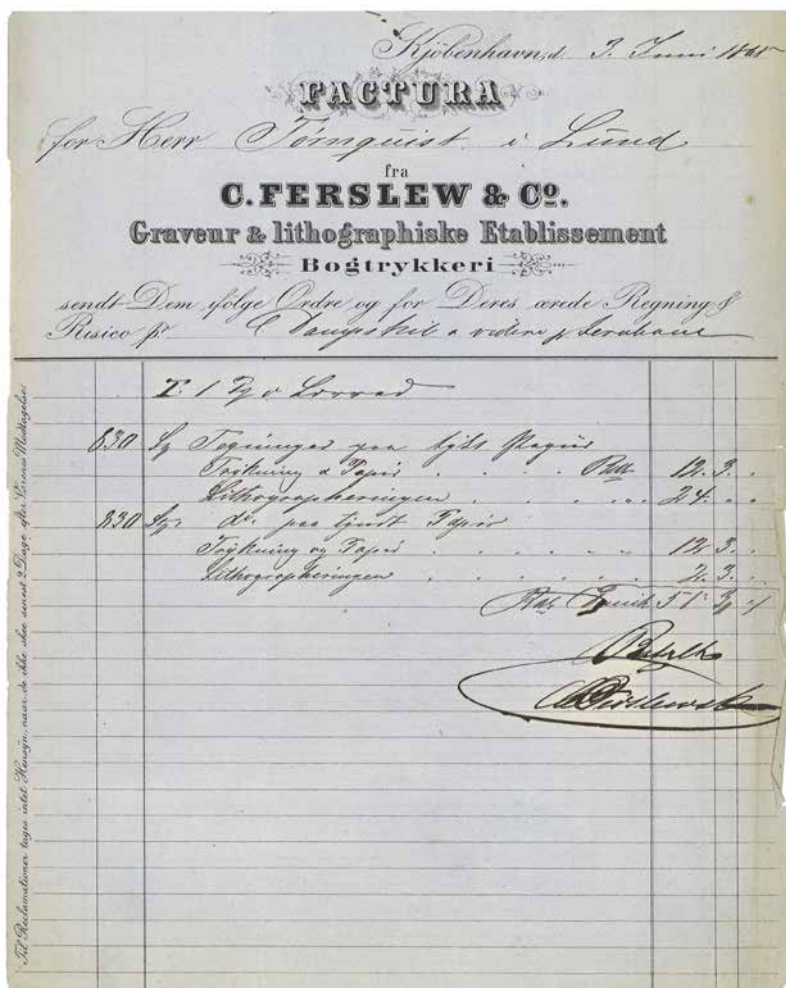 Kjöbenhavn, d. 3. Juni 18
FACTURA
for Herr Törnquist i Lund
fra
C. FERSLEW & Cº.
Graveur & lithographiske Etablissement
Bogtrykkeri
sendt Dem ifölge Ordre og for Deres ærede Regning &
Risico pr. Dampskib
830 Tegninger paa tykt Papiir
Trykning & Papir . . . . . 12. 3. .
Lithographeringen . . . . . . . 24. . .
830 do. paa tyndt Papir
Trykning og Papir . . . . . . . 12 3. .
Lithographeringen . . . . . . 2. 3. .
51 3
Til Reclamationer tages intet Hensyn, naar de ikke skee senest 2 Dage efter Varernes Modtagelse.